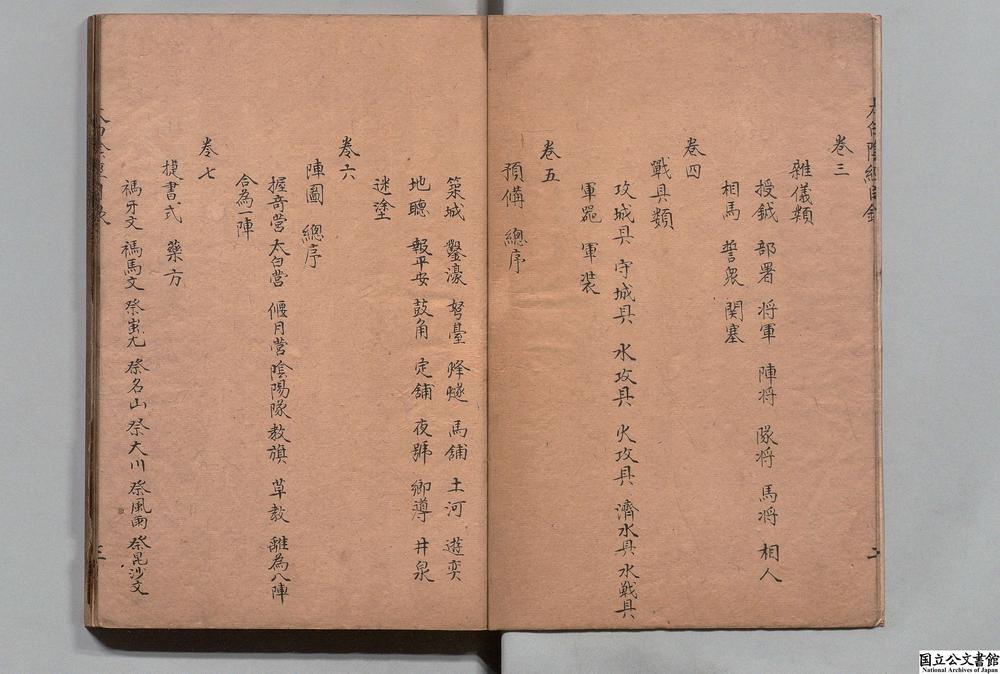 卷三
雜儀類
授鉞 部署 将軍 陣将 隊将 馬将 相人
相馬 誓衆 関塞
卷四
戰具類
攻城具 守城具 水攻具 火攻具 濟水具 水戦具
軍噐 軍装
卷五
預備 總序
築城 鑿濠 弩臺 烽燧 馬舖 土河 遊奕
地聽 報平安 鼓角 定舖 夜號 鄉導 井泉
迷塗
卷六
陣圖 總序
握竒営 太白营 偃月营 陰陽隊 教旗 草教 離為八陣
合為一陣
卷七
捷書式 藥方
禡牙文 禡馬文 祭蚩尤 祭名山 祭大川 祭風雨 祭毘沙文
三
国立公文書館
National Archives of Japan